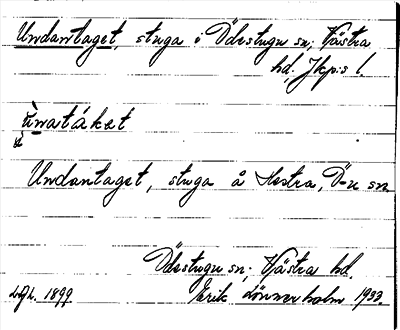 Undantaget, stuga i Ödestugu sn; Västra
hd. Jkp:s l.
ùnatáket
Undantaget, stuga å Hestra, Ö-u sn
Ödestugu sn; Västra hd.
1899. Erik Lönnerholm 1933.